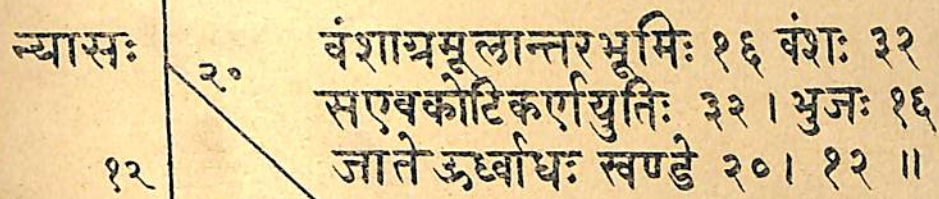 न्यासः २० वंशाग्रमूलान्तरभूमिः १६ वंशः ३२
सएवकोटिकर्णयुतिः ३२ । भुजः १६
१२ जाते ऊर्ध्वाधः खण्डे २०। १२ ॥